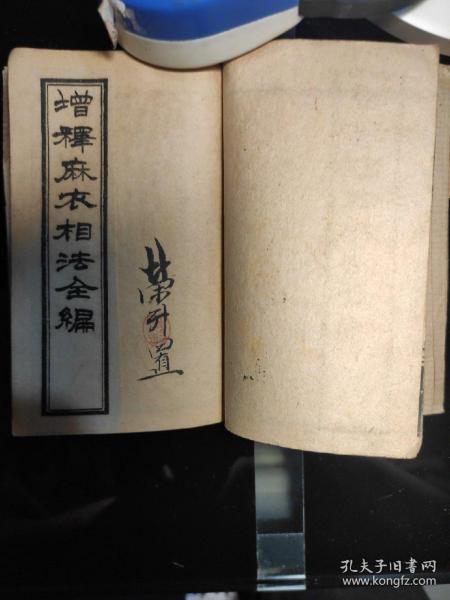 增釋麻衣相法全編
榮升置
孔夫子旧书网
www.kongfz.com